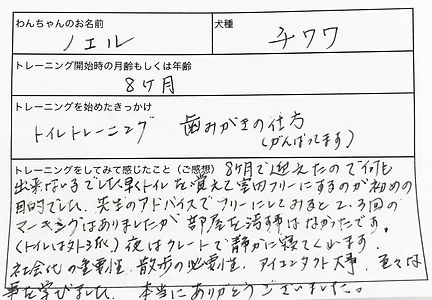 わんちゃんのお名前
ノエル
犬種
チワワ
トレーニング開始時の月齢もしくは年齢
8ヶ月
トレーニングを始めたきっかけ
トイレトレーニング 歯みがきの仕方
(がんばってます)
トレーニングをしてみて感じたこと(ご感想) 8ヶ月で迎えたので何も
出来ないるでした早くトイレを覚えて室内フリーにするのが初めの
目的でした。先生のアドバイスでフリーにしてみると2、3回の
マーキングはありましたが部屋を汚す事はなかったです。
(トイレは外) 夜はクレートで静かに寝てくれます。
社会化の重要性、散歩の必要性、アイコンタクト大事、色々な
事を学びました。本当にありがとうございました。